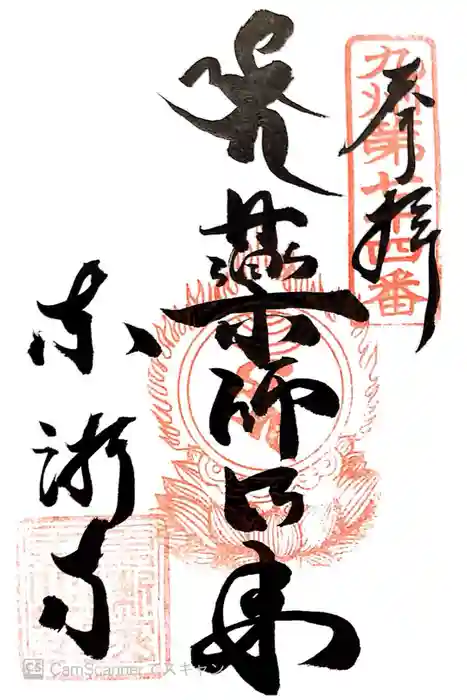 九州第七十四番
奉拝
薬師如来
東漸寺
CS CamScanner でスキャン